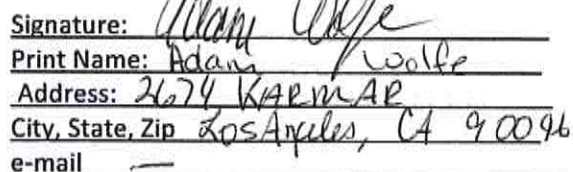 Signature: Adam Wolfe
Print Name: Adam Wolfe
Address: 2674 KARMAR
City, State, Zip Los Angeles, CA 90096
e-mail —